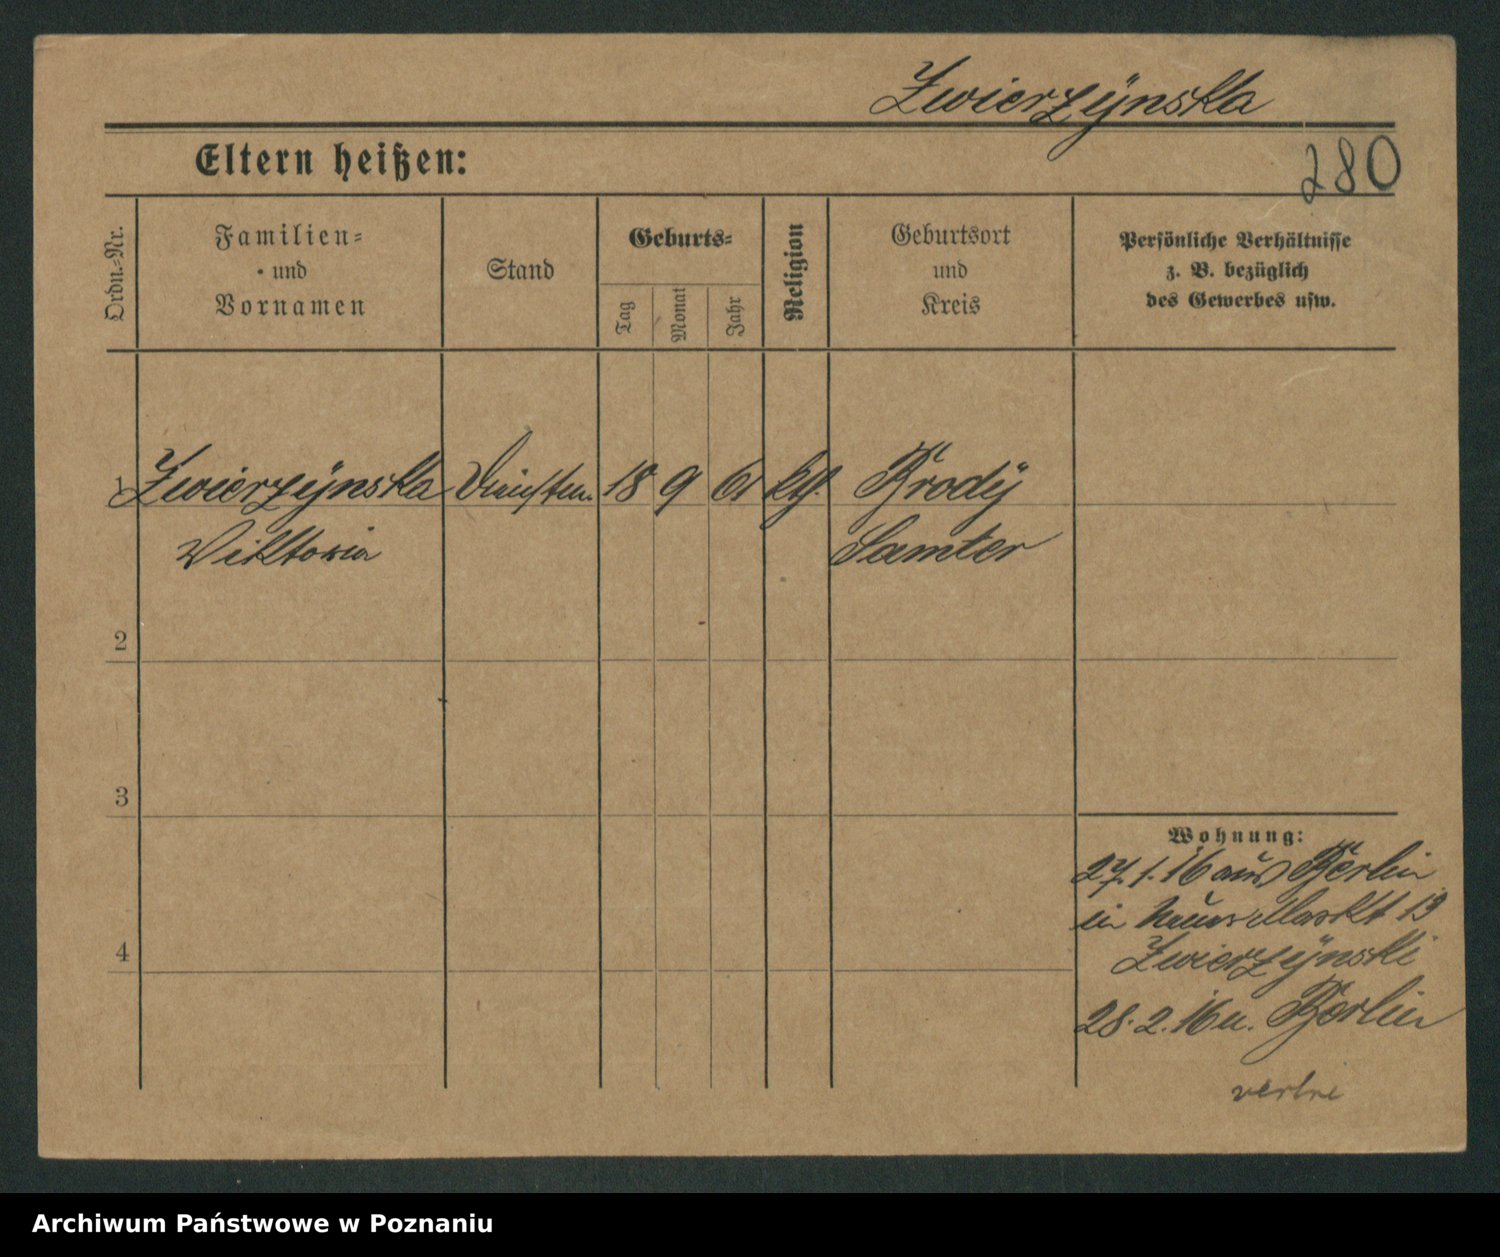 Zwierzÿnska
280
Eltern heißen:
Ordn.-Nr.
Familien-
und
Vornamen
Stand
Geburts-
Tag
Monat
Jahr
Religion
Geburtsort
und
Kreis
Persönliche Verhältnisse
z. B. bezüglich
des Gewerbes usw.
1 Zwierzÿnska 18 9 61 kth. Brodÿ
Viktoria Samter
2
3
4
Wohnung:
27.1.16 aus Berlin
in Neuer Markt 19
Zwierzÿnski
28.2.16 n. Berlin
Archiwum Państwowe w Poznaniu